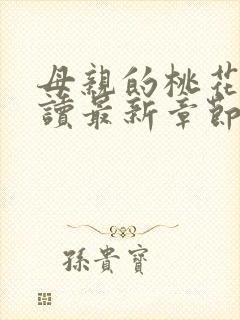 母親的桃花
讀最新章節
孫貴寶